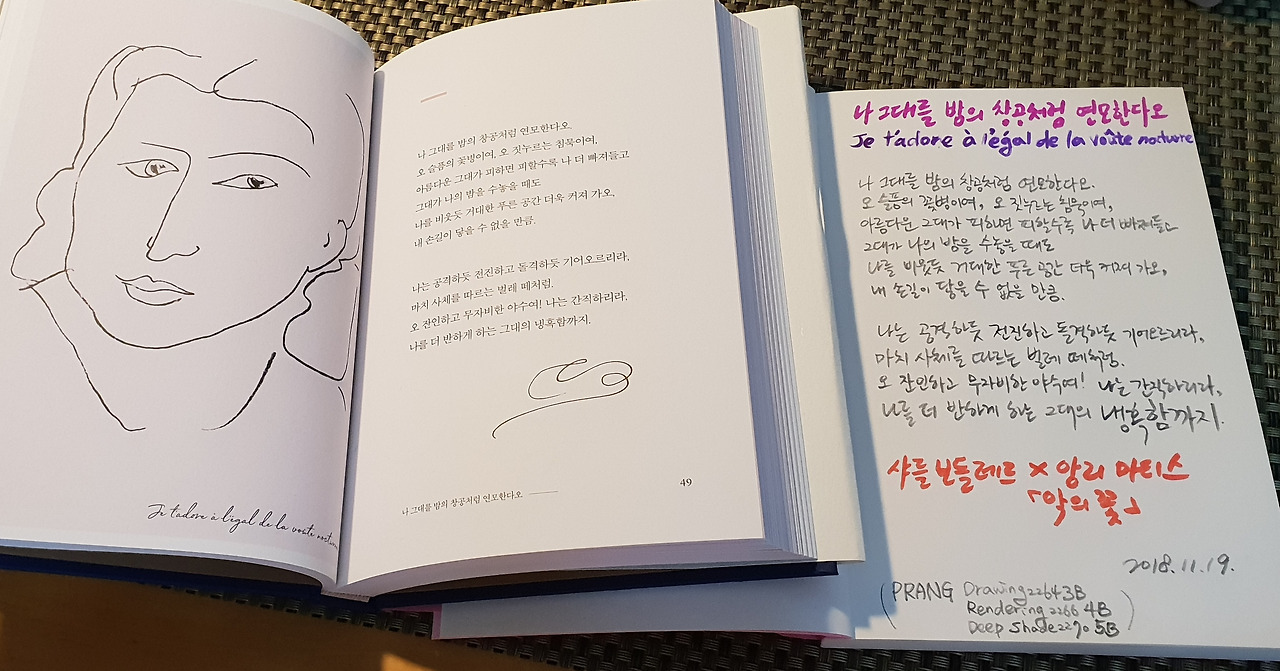 Je t'adore à l'égal de la voûte nocturne
나 그대를 밤의 창공처럼 연모한다오.
오 슬픔의 꽃병이여, 오 짓누르는 침묵이여,
아름다운 그대가 피하면 피할수록 나 더 빠져들고
그대가 나의 밤을 수놓을 때도
나를 비웃듯 거대한 푸른 공간 더욱 커져 가오,
내 손길이 닿을 수 없을 만큼.
나는 공격하듯 전진하고 돌격하듯 기어오르리라,
마치 사체를 따르는 벌레 떼처럼.
오 잔인하고 무자비한 야수여! 나는 간직하리라,
나를 더 반하게 하는 그대의 냉혹함까지.
나 그대를 밤의 창공처럼 연모한다오
49
나 그대를 밤의 창공처럼 연모한다오
Je t'adore à l'égal de la voûte nocturne
나 그대를 밤의 창공처럼 연모한다오.
오 슬픔의 꽃병이여, 오 짓누르는 침묵이여,
아름다운 그대가 피하면 피할수록 나 더 빠져들고
그대가 나의 밤을 수놓을 때도
나를 비웃듯 거대한 푸른 공간 더욱 커져 가오,
내 손길이 닿을 수 없을 만큼.
나는 공격하듯 전진하고 돌격하듯 기어오르리라,
마치 사체를 따르는 벌레 떼처럼.
오 잔인하고 무자비한 야수여! 나는 간직하리라,
나를 더 반하게 하는 그대의 냉혹함까지.
샤를 보들레르 × 앙리 마티스
「악의 꽃」
2018.11.19.
(PRANG Drawing 2264 3B
Rendering 2266 4B
Deep Shade 2270 5B)